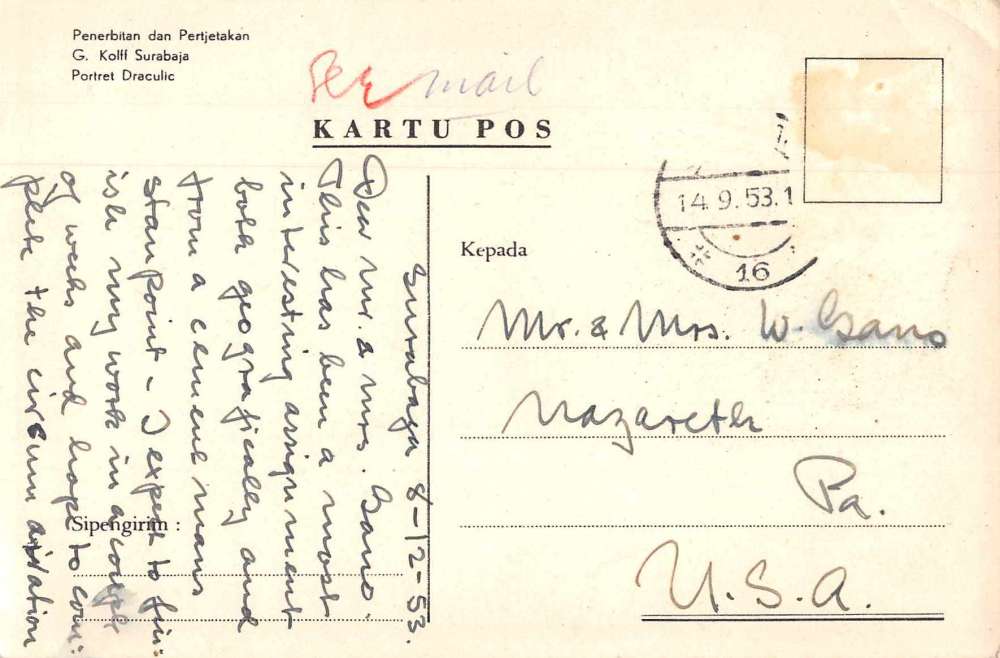 Penerbitan dan Pertjetakan
G. Kolff Surabaja
Portret Draculic
mail
KARTU POS
14.9.53.1
16
Kepada
Mr. & Mrs. W. Gano
Nazareth
Pa.
U.S.A.
Sipengirim :
Surabaya 8-12-53.
Dear Mr. & Mrs. Gano.
This has been a most
interesting assignment
both geografically and
from a cement mans
stanpoint - I expect to fin:
ish my work in a couple
of weeks and hope to com:
plete the